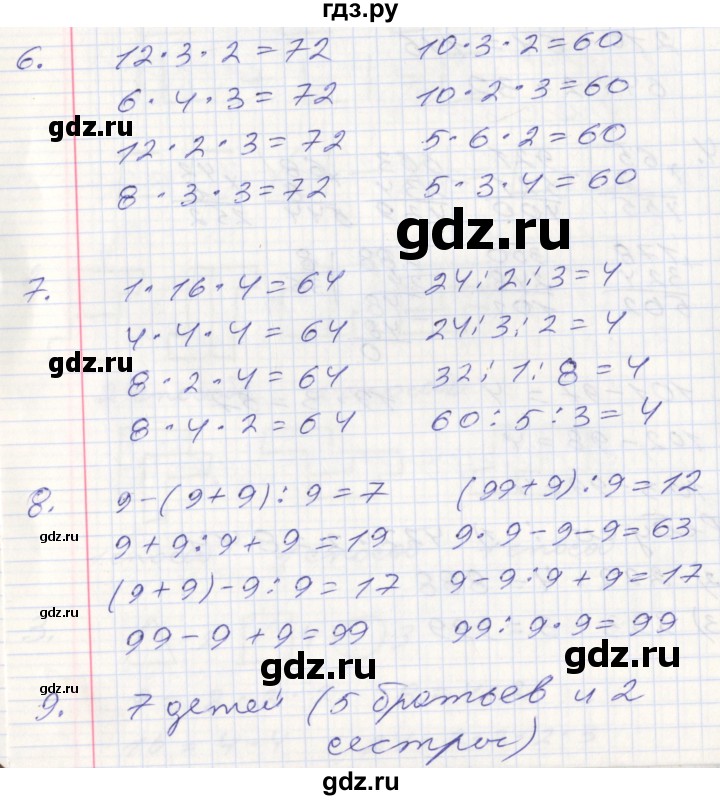 гдз.ру
6. 12·3·2=72 10·3·2=60
6·4·3=72 10·2·3=60
gdz.ru
12·2·3=72 5·6·2=60
8·3·3=72 5·3·4=60
gdz.ru
7. 1·16·4=64 24:2:3=4
4·4·4=64 24:3:2=4
gdz.ru
8·2·4=64 32:1:8=4
8·4·2=64 60:5:3=4
8. 9-(9+9):9=7 (99+9):9=12
gdz.ru
9+9:9+9=19 9·9-9-9=63
(9+9)-9:9=17 9-9:9+9=17
gdz.ru
99-9+9=99 99:9·9=99
gdz.ru gdz.ru
gdz.ru
9. 7 детей (5 братьев и 2
сестры)
gdz.ru